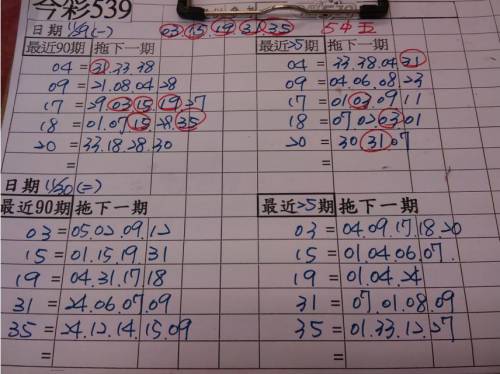 今彩539
日期 (一) 03 15 19 31 35 5中五
最近90期 拖下一期 最近25期 拖下一期
04 = 31.33.38 04 = 33.38.04.31
09 = 21.08.04.28 09 = 04.06.08.23
17 = 29.03.15.19.27 17 = 01.03.09.11
18 = 01.07.15.28.35 18 = 07.02.03.01
20 = 33.18.28.30 20 = 30.31.07
= =
日期 11/20 (二)
最近90期 拖下一期 最近25期 拖下一期
03 = 05.02.09.12 03 = 04.09.17.18.20
15 = 01.15.19.31 15 = 01.04.06.07.
19 = 04.31.17.18 19 = 01.04.24
31 = 24.06.07.09 31 = 07.01.08.09
35 = 24.12.14.15.09 35 = 01.33.12.27
= =